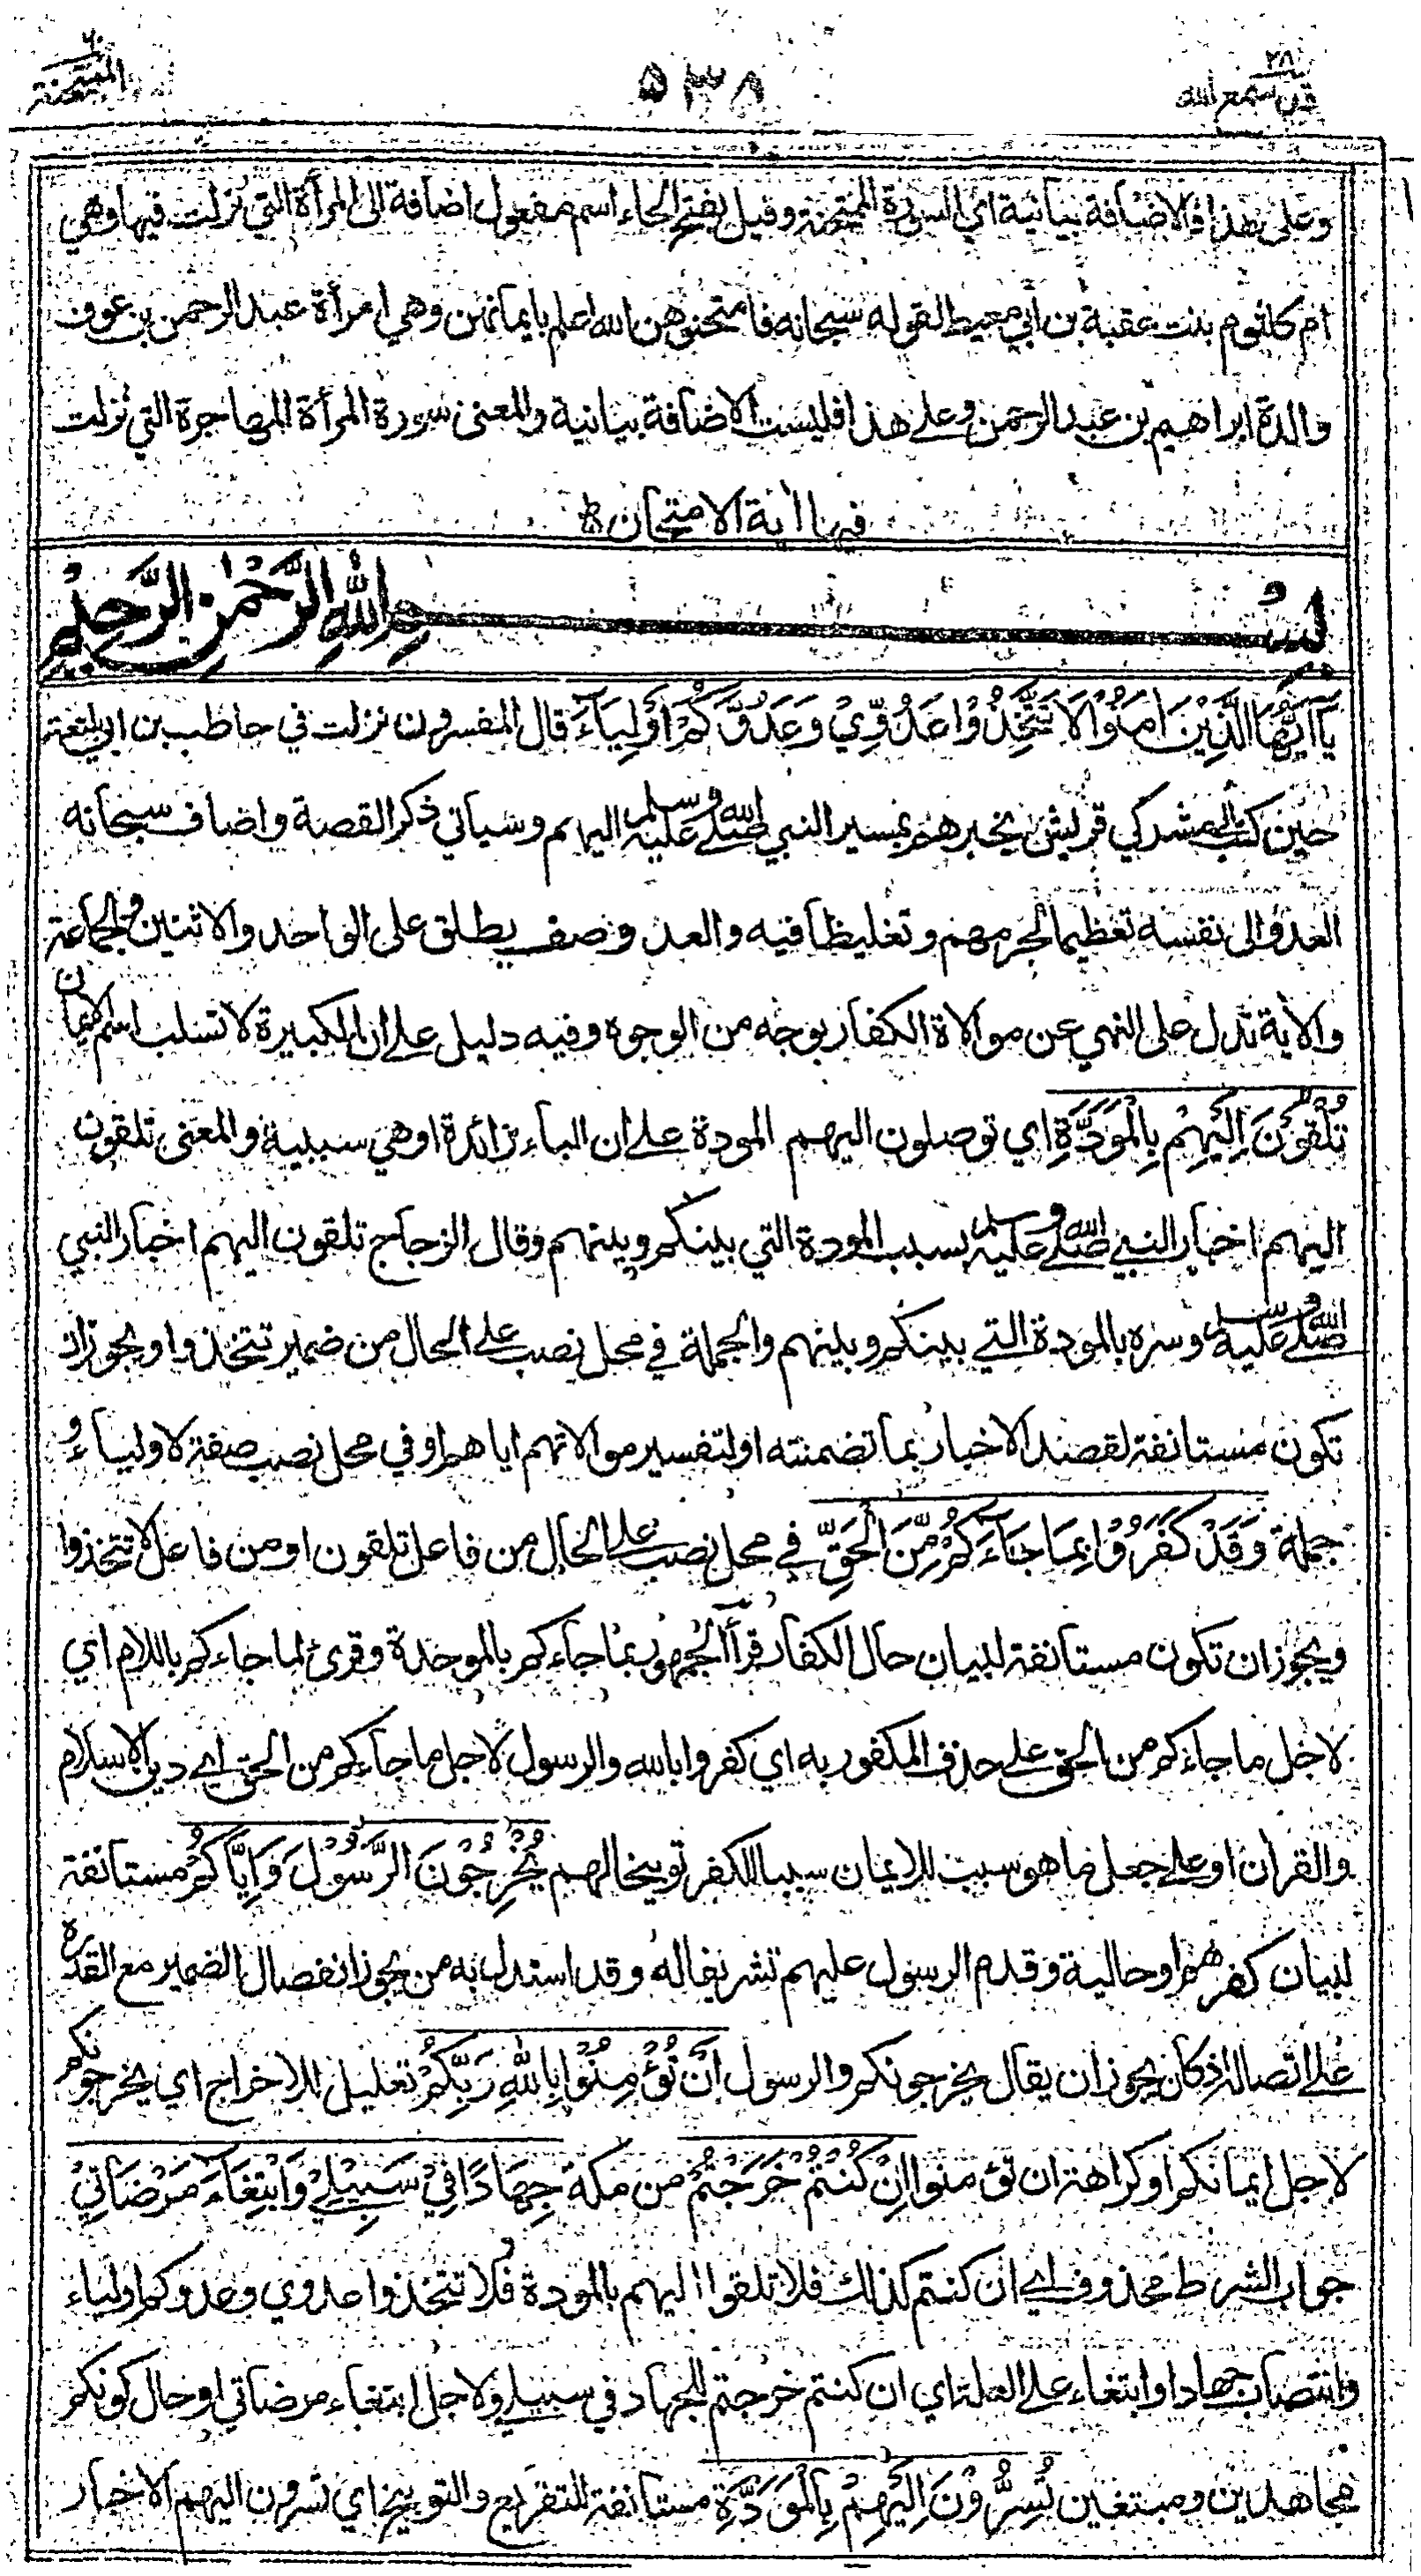 ٢٨
قد سمع الله
٥٣٨
٦٠
الممتحنة
وعلى هذا فالاضافة بيانية اي السورة الممتحنة وقيل بفتح الحاء اسم مفعول اضافة الى المرأة التي نزلت فيها وهي
ام كلثوم بنت عقبة بن أبي معيط لقوله سبحانه فامتحنوهن الله اعلم بايمانهن وهي امرأة عبد الرحمن بن عوف
والدة ابراهيم بن عبد الرحمن وعلى هذا فليست الاضافة بيانية والمعنى سورة المرأة المهاجرة التي نزلت
فيها اٰية الامتحان
بِسْمِ اللهِ الرَّحْمٰنِ الرَّحِيْمِ
يَآاَيُّهَا الَّذِيْنَ اٰمَنُوْا لَا تَتَّخِذُوْا عَدُوِّيْ وَعَدُوَّكُمْ اَوْلِيَآءَ قال المفسرون نزلت في حاطب بن ابي بلتعة
حين كتب الى مشركي قريش يخبرهم بمسير النبي صلى الله عليه وسلم اليهم وسياتي ذكر القصة واضاف سبحانه
العدو الى نفسه تعظيما لجرمهم وتغليظا فيه والعدو وصف يطلق على الواحد والاثنين والجماعة
والاٰية تدل على النهي عن موالاة الكفار بوجه من الوجوه وفيه دليل على ان الكبيرة لا تسلب اسم الايمان
تُلْقُوْنَ اِلَيْهِمْ بِالْمَوَدَّةِ اي توصلون اليهم المودة على ان الباء زائدة او هي سببية والمعنى تلقون
اليهم اخبار النبي صلى الله عليه وسلم بسبب المودة التي بينكم وبينهم وقال الزجاج تلقون اليهم اخبار النبي
صلى الله عليه وسلم وسره بالمودة التي بينكم وبينهم والجملة في محل نصب على الحال من ضمير تتخذوا ويجوز ان
تكون مستانفة لقصد الاخبار بما تضمنته او لتفسير موالاتهم اياهم او في محل نصب صفة لاولياء و
جملة وَقَدْ كَفَرُوْا بِمَا جَآءَكُمْ مِّنَ الْحَقِّ في محل نصب على الحال من فاعل تلقون او من فاعل لا تتخذوا
ويجوز ان تكون مستانفة لبيان حال الكفار قرأ الجمهور بما جاءكم بالموحدة وقرئ لما جاءكم باللام اي
لاجل ما جاءكم من الحق على حذف المكفور به اي كفروا بالله والرسول لاجل ما جاءكم من الحق اي دين الاسلام
والقراٰن او على جعل ما هو سبب للايمان سببا للكفر توبيخا لهم يُخْرِجُوْنَ الرَّسُوْلَ وَاِيَّاكُمْ مستانفة
لبيان كفرهم او حالية وقدم الرسول عليهم تشريفا له وقد استدل به من يجوز انفصال الضمير مع القدرة
على اتصاله اذ كان يجوز ان يقال يخرجونكم والرسول اَنْ تُؤْمِنُوْا بِاللهِ رَبِّكُمْ تعليل للاخراج اي يخرجونكم
لاجل ايمانكم او كراهة ان تؤمنوا اِنْ كُنْتُمْ خَرَجْتُمْ من مكة جِهَادًا فِيْ سَبِيْلِيْ وَابْتِغَآءَ مَرْضَاتِيْ
جواب الشرط محذوف اي ان كنتم كذلك فلا تلقوا اليهم بالمودة فلا تتخذوا عدوي وعدوكم اولياء
وانتصاب جهادا وابتغاء على العلة اي ان كنتم خرجتم للجهاد في سبيلي ولاجل ابتغاء مرضاتي او حال كونكم
مجاهدين ومبتغين تُسِرُّوْنَ اِلَيْهِمْ بِالْمَوَدَّةِ مستانفة للتقريع والتوبيخ اي تسرون اليهم الاخبار